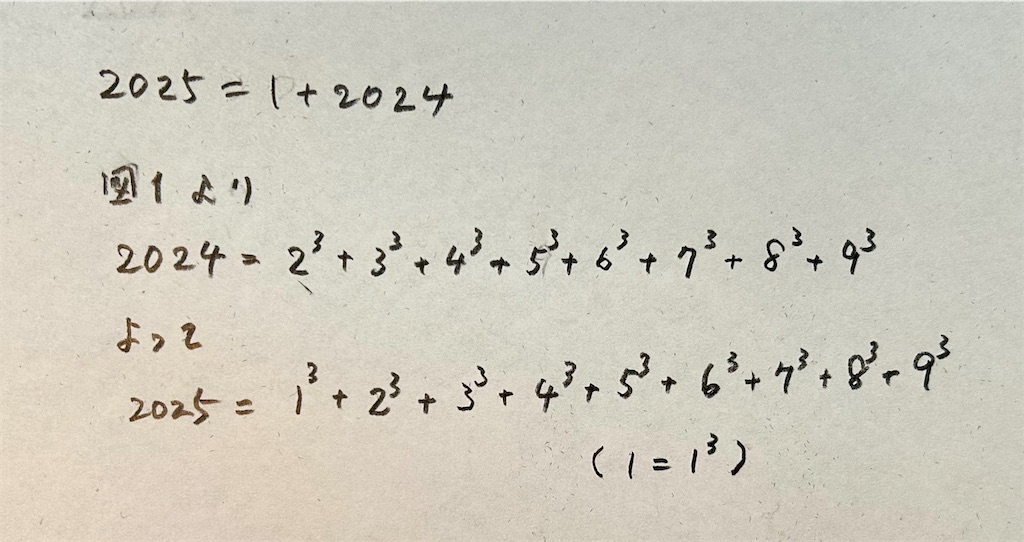 2025 = 1 + 2024
図1より
2024 = 2³ + 3³ + 4³ + 5³ + 6³ + 7³ + 8³ + 9³
よって
2025 = 1³ + 2³ + 3³ + 4³ + 5³ + 6³ + 7³ + 8³ + 9³
(1 = 1³)